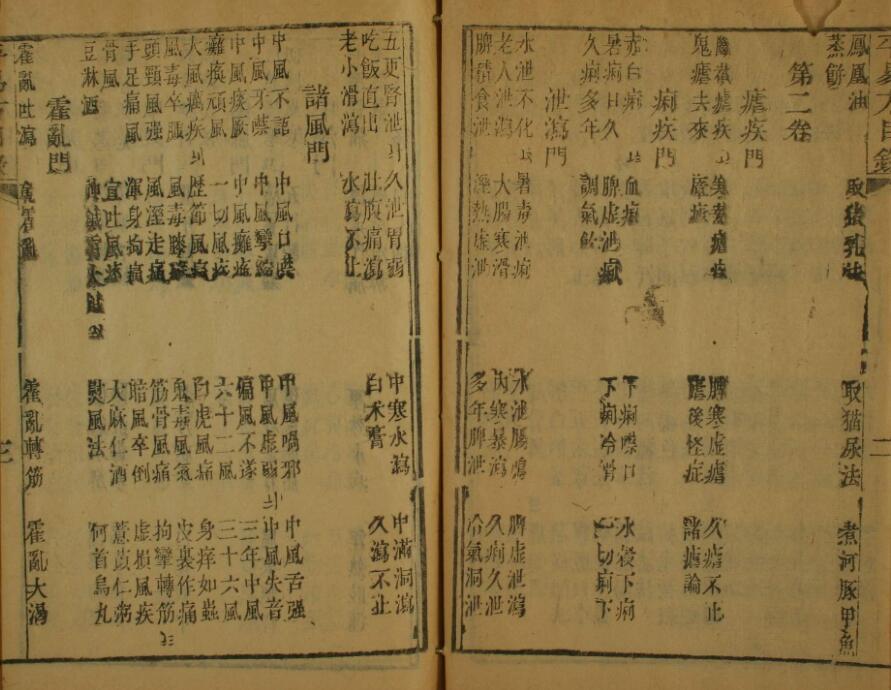 易方目錄 二
鳳凰油 取猫尿法 煮河豚甲魚
蒸餅
第二卷
瘧疾門
瘧疾 脾寒虛瘧 久瘧不止
鬼瘧去來 瘧後怪症 諸瘧論
痢疾門
赤白痢 血痢 下痢噤口 水穀下痢
暑痢日久 脾虛泄痢 下痢冷骨 一切痢下
久痢多年 調氣飲
泄瀉門
水泄不化 暑毒泄痢 水泄腸鳴 脾虛泄瀉
老人泄瀉 大腸寒滑 內寒暴瀉 久痢久泄
脾積食泄 溼熱虛泄 多年脾泄 冷氣洞泄
五更腎泄 久泄胃弱 中寒水瀉 中滿洞瀉
吃飯直出 肚腹痛瀉 白朮膏 久瀉不止
老小滑瀉 水瀉不止
諸風門
中風不語 中風口噤 中風喎邪 中風舌強
中風牙噤 中風攣縮 中風虛弱 中風失音
中風痰厥 中風癱瘓 偏風不遂 三年中風
癱瘓頑風 一切風疾 六十二風 三十六風
大風癘疾 歷節風痛 白虎風痛 身痒如蟲
風毒卒 風毒膝痛 鬼毒風氣 皮裏作痛
頭頸風強 風溼走痛 筋骨風痛 拘攣轉筋
手足痛風 渾身拘痛 暗風卒倒 虛損風疾
骨風 宣吐風 大麻仁酒 薏苡仁粥
豆淋酒 神鍼雷火鍼 熨風法 何首烏丸
霍亂門
霍亂吐瀉 乾霍亂 霍亂轉筋 霍亂大渴
三